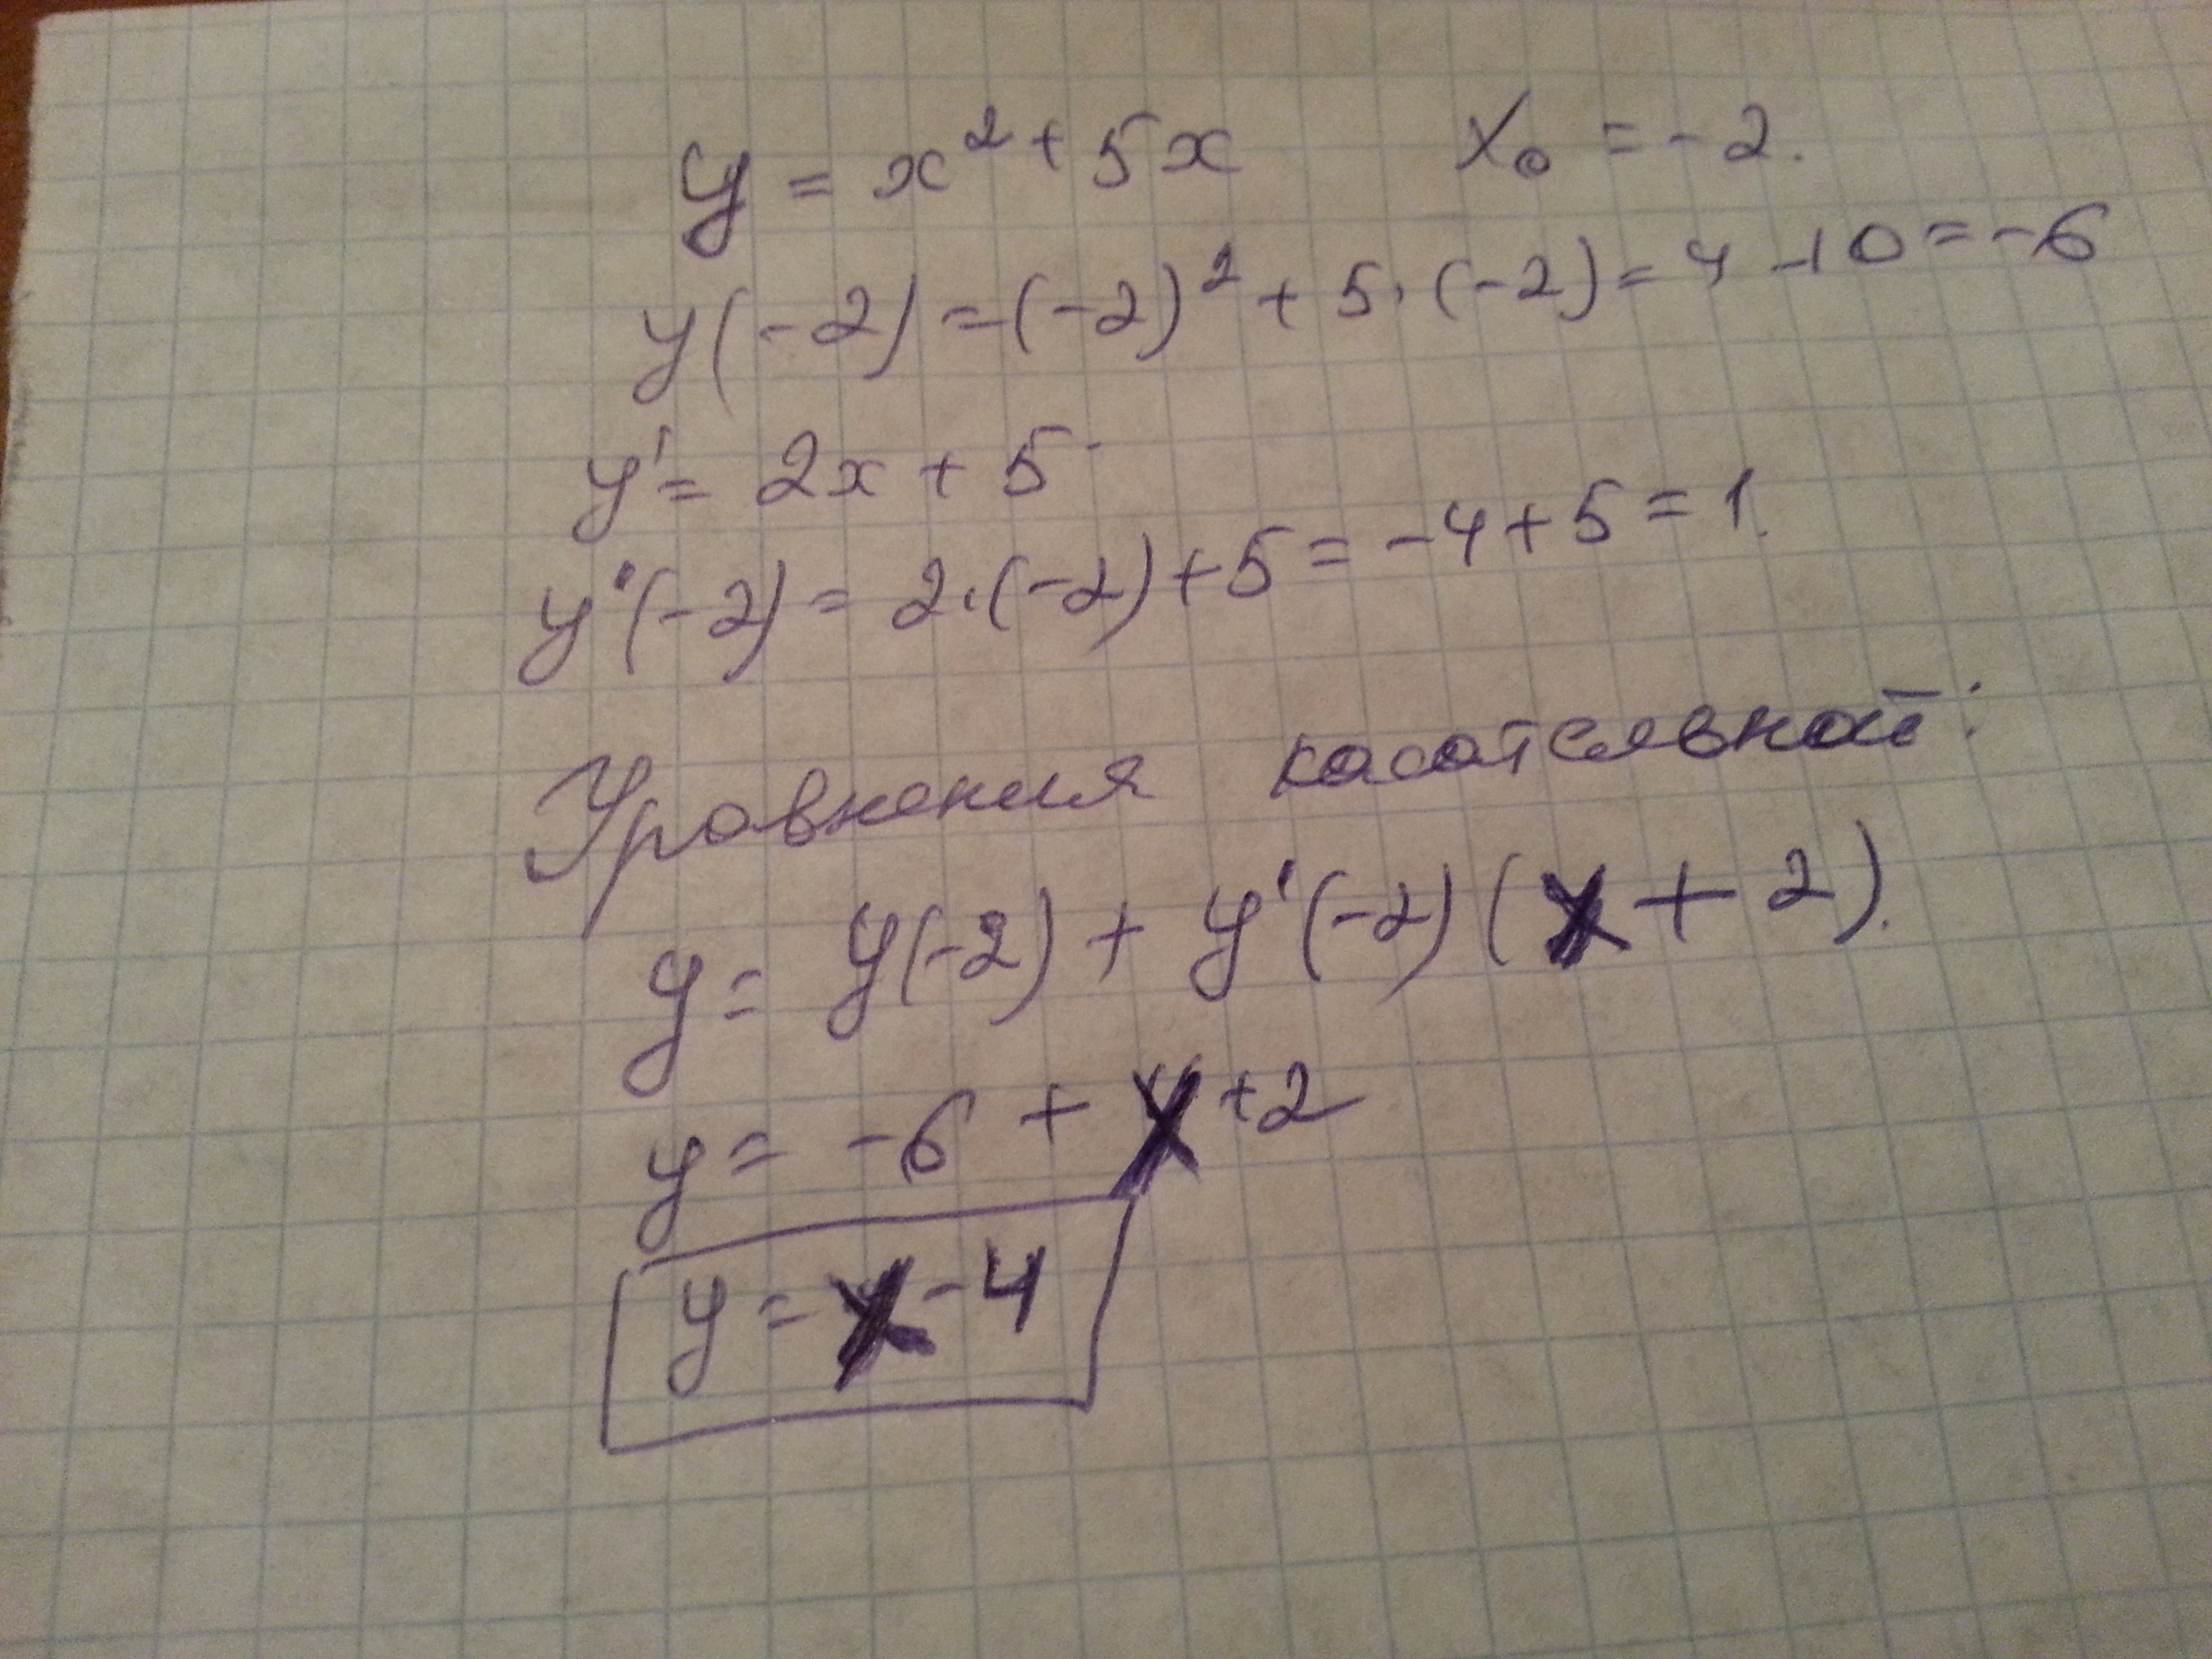 y = x² + 5x x₀ = -2.
y(-2) = (-2)² + 5·(-2) = 4 - 10 = -6
y' = 2x + 5
y'(-2) = 2·(-2) + 5 = -4 + 5 = 1.
Уровнения касательной:
y = y(-2) + y'(-2)(x + 2).
y = -6 + x + 2
y = x - 4